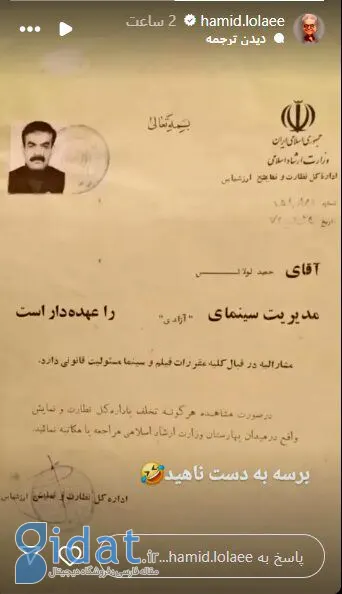 hamid.lolaee 2 ساعت
دیدن ترجمه
بسمه تعالی
جمهوری اسلامی ایران
وزارت ارشاد اسلامی
اداره کل نظارت و نمایش ارزشیابی
شماره
تاریخ
آقای حمید لولائی
مدیریت سینمای "آزادی" را عهده‌دار است
مشارالیه در قبال کلیه مقررات فیلم و سینما مسئولیت قانونی دارد.
درصورت مشاهده هرگونه تخلف باداره کل نظارت و نمایش
واقع درمیدان بهارستان وزارت ارشاد اسلامی مراجعه یا مکاتبه نمائید.
برسه به دست ناهید🤣
اداره کل نظارت و نمایش ارزشیابی
پاسخ به hamid.lolaee...
gidat.ir
مقاله فارسی و فروشگاه دیجیتال